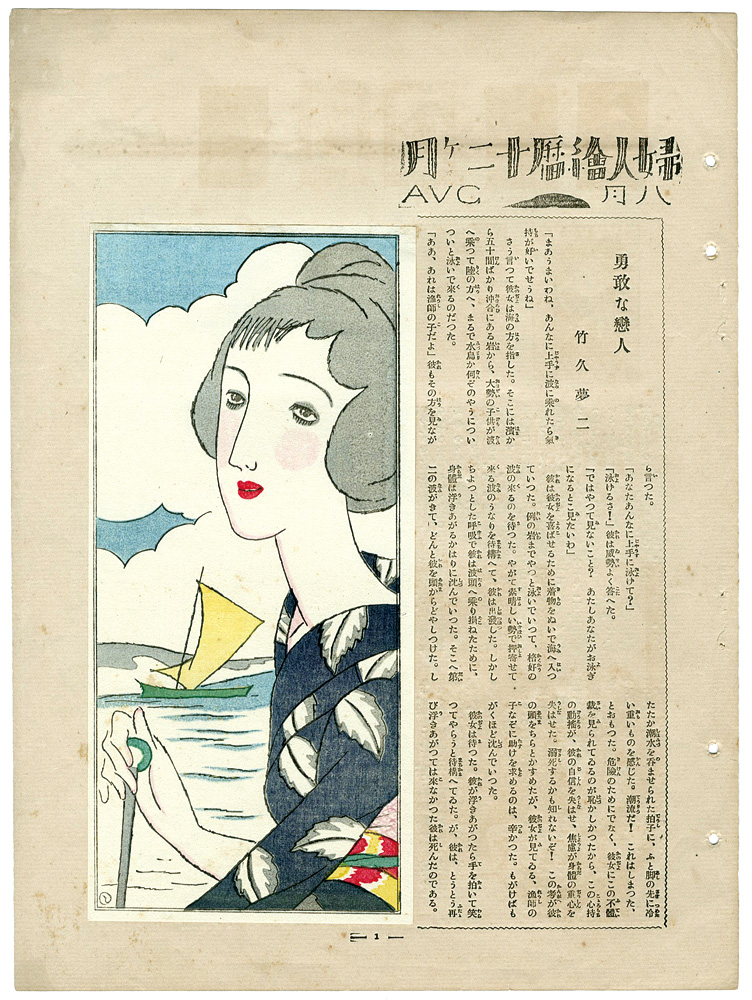 婦人繪暦十二ケ月
八月
AVG
勇敢な戀人
竹久夢二
「まあうまいわね、あんなに上手に波に乘れたら氣
持が好いでせうね」
さう言つて彼女は海の方を指した。そこには濱か
ら五十間ばかり沖合にある岩から、大勢の子供が波
へ乘つて陸の方へ、まるで水鳥か何ぞのやうについ
ついと泳いで來るのだつた。
「ああ、あれは漁師の子だよ」彼もその方を見なが
ら言つた。
「あなたあんなに上手に泳けて?」
「泳けるさ!」彼は威勢よく答へた。
「ではやつて見ないこと? あたしあなたがお泳ぎ
になるとこ見たいわ」
彼は彼女を喜ばせるために着物をぬいで海へ入つ
ていつた。例の岩までやつと泳いでいつて、恰好の
波の來るのを待つた。やがて素晴しい勢で押寄せて
來る波のうなりを待構へて、彼は出發した。しかし
ちよつとした呼吸で彼は波頭へ乘り損ねたために、
身體は浮きあがるかはりに沈んでいつた。そこへ第
二の波がきて、どんと彼を頭からどやしつけた。し
たたか潮水を呑ませられた拍子に、ふと脚の先に冷
い重いものを感じた。潮流だ! これはしまつた、
とおもつた。危險のためにでなく、彼女にこの不體
裁を見られてゐるのが恥かしかつたから、この心持
の動搖が、彼の自信を失はせ、焦慮が身體の重心を
失はせた。溺死するかも知れないぞ! この考が彼
の頭をちらとかすめたが、彼女が見てゐる、漁師の
子なぞに助けを求めるのは、辛かつた。もがけばも
がくほど沈んでいつた。
彼女は待つた。彼が浮きあがつたら手を拍いて笑
つてやらうと待構へてゐた。が、彼は、とうとう再
び浮きあがつては來なかつた彼は死んだのである。
1